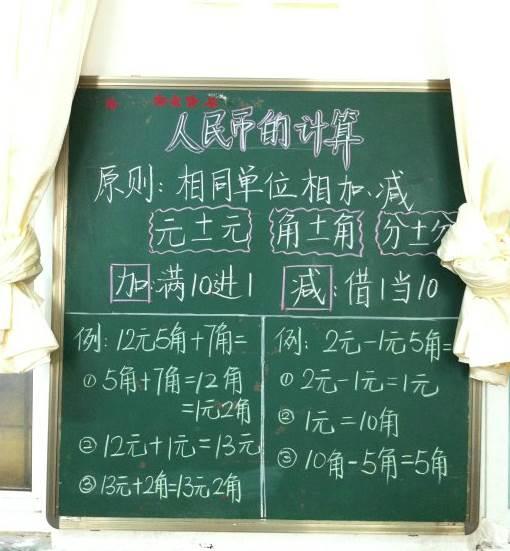 人民币的计算
原则:相同单位相加、减
元±元 角±角 分±分
加:满10进1 减:借1当10
例:12元5角+7角=
① 5角+7角=12角
=1元2角
② 12元+1元=13元
③ 13元+2角=13元2角
例: 2元-1元5角=
① 2元-1元=1元
② 1元=10角
③ 10角-5角=5角